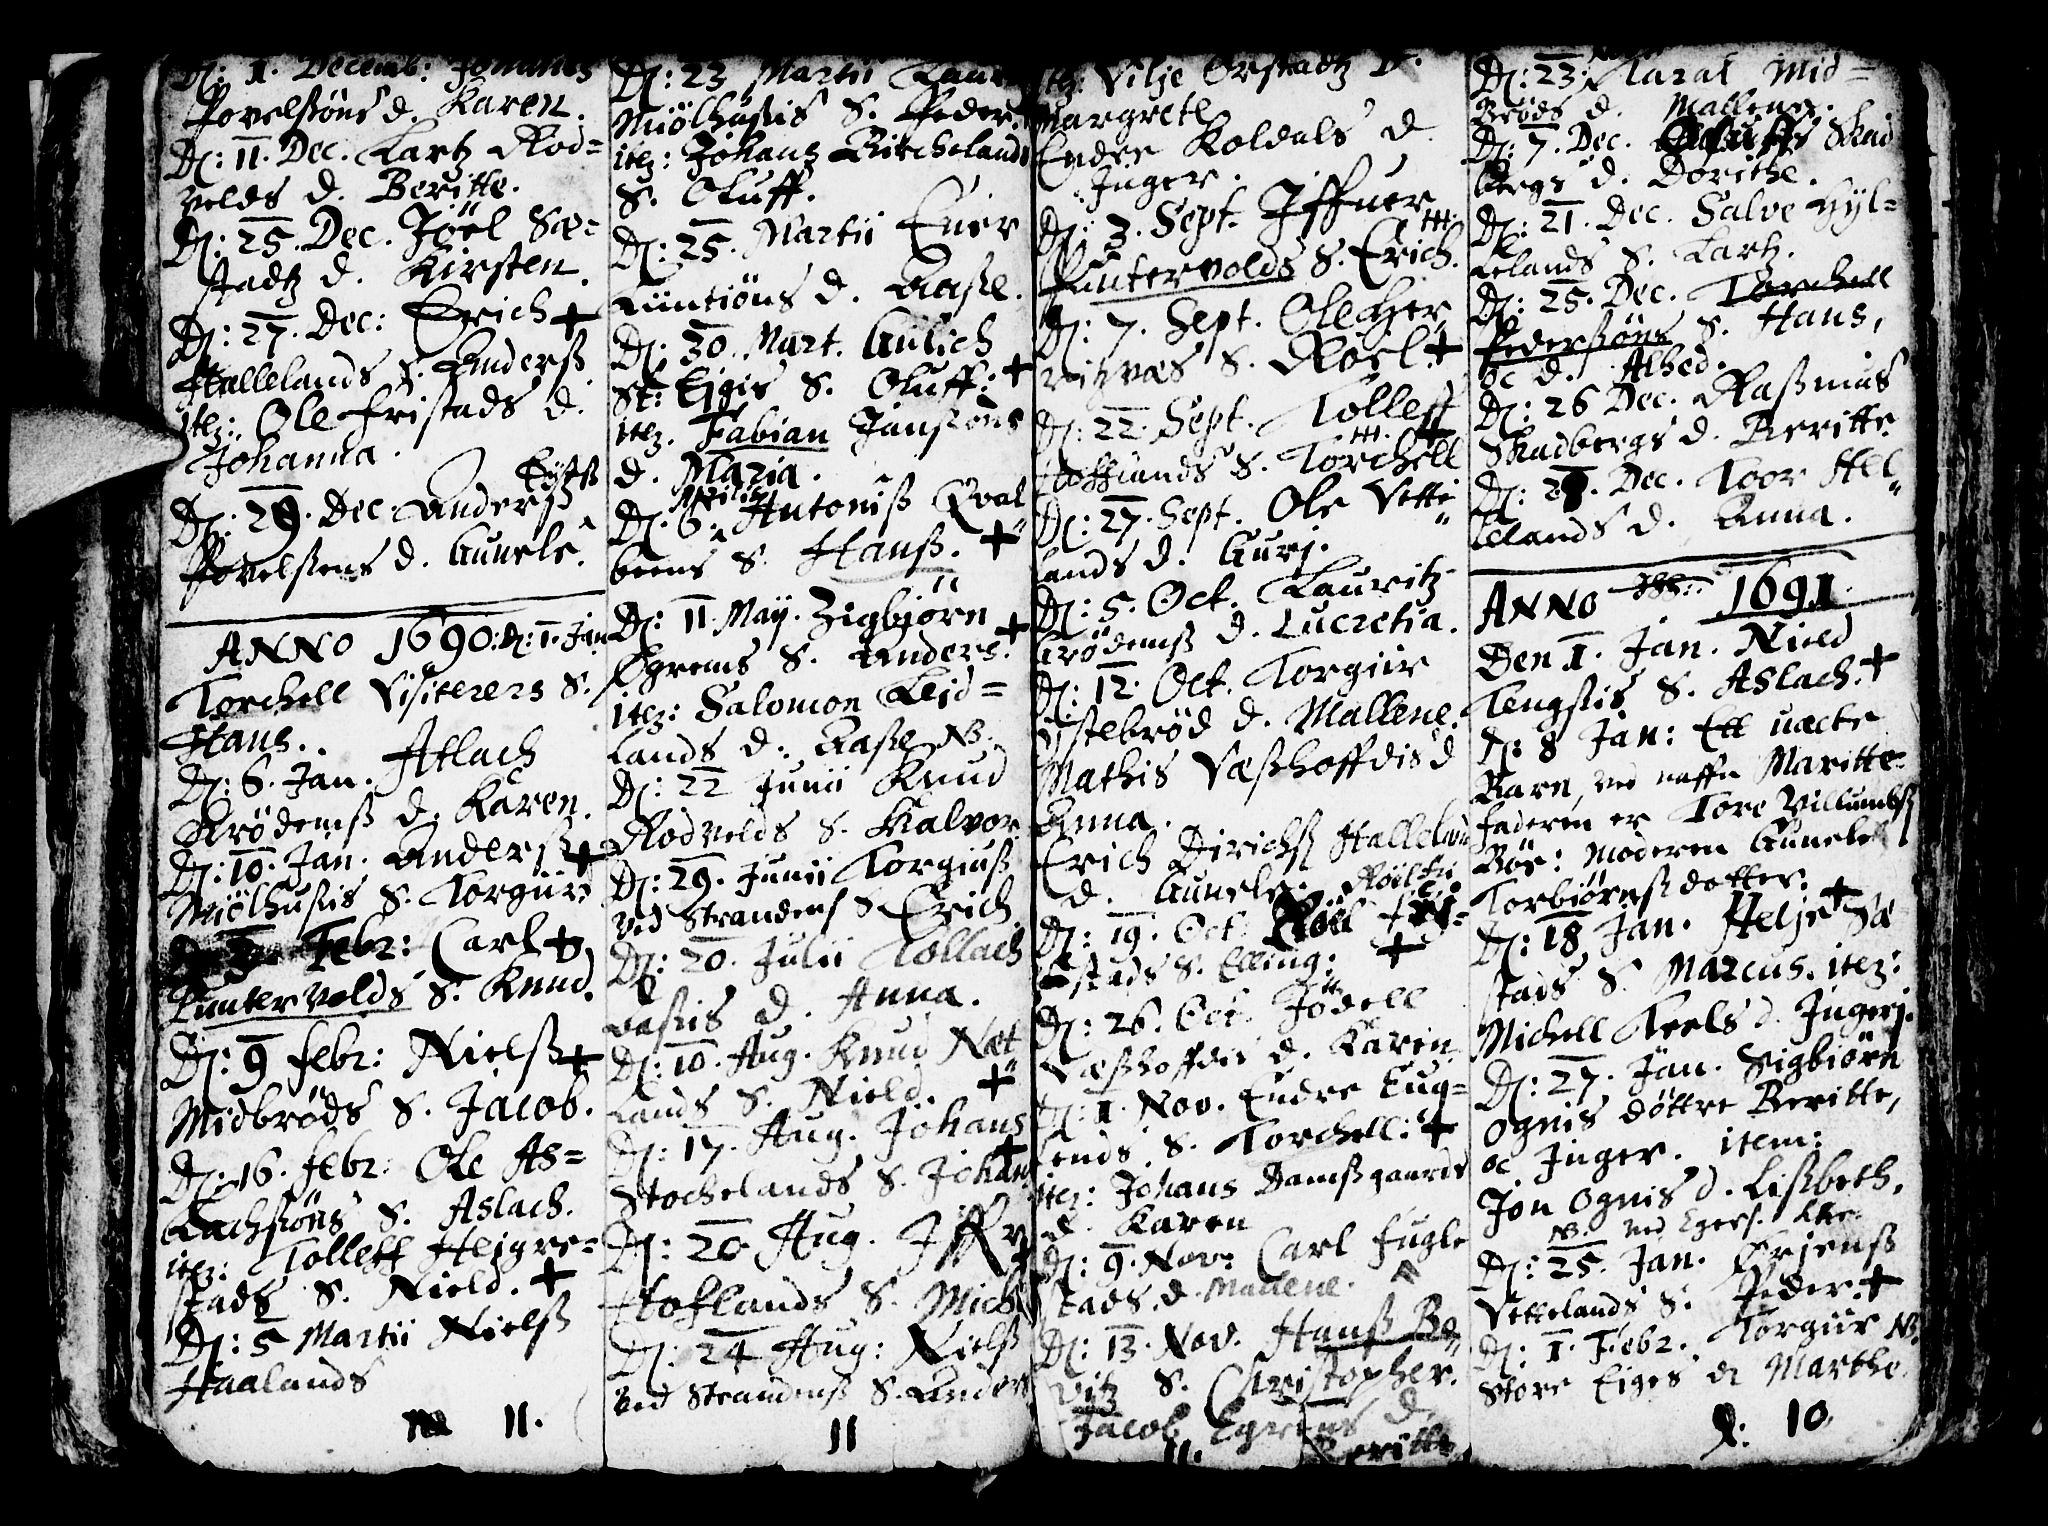 D: 1. Decemb: Johannes
Povelsøns d. Karen.
D: 11. Dec. Lartz Rod=
velds d. Beritte.
D: 25. Dec. Jøel Sæ=
stadtz d. Kirsten.
D: 27. Dec: Erich +
Hallelands S. Anderß
itez: Ole Fristads d.
Johanna.
D: 29. Dec. Anderß
Povelsens d. Gunele.
ANNO 1690: D: 1. Jan
Torchell Visiterers S.
Hans.
D: 6. Jan. Atlach
Krødemß d. Karen.
D: 10. Jan. Anderß +
Miølhusis S. Torgiir
Febr: Carl +
Puntervolds S. Knud.
D: 9 Febr: Nielß +
Midbrøds S. Jacob.
D: 16. Febr. Ole As=
lachsøns S. Aslach.
itez: Tolleff Hejgre=
stads S. Nield. +
D: 5 Martii Nielß
Haalands
11.
D: 23 Martii
Miølhusis S. Peder.
itez: Johans Birchelands
S. Oluff.
D: 25. Martii Ener
d. Aaße.
D: 30. Mart. Gulich
St: Ejgis S. Oluff: +
itez. Fabian Jansøns
d. Maria.
D. 6. Aprilis Antoniß Qval
beens S. Hanß. +
D: 11. May. Zigbjørn +
Øgrems S. Anders.
itez: Salomon Leid=
lands d. Aaße NB.
D: 22 Junii Knud
Rodvelds S. Halvor.
D: 29. Junii Torgiuß
ved Strandens S. Erich
D: 20. Julii Tollach
d. Anna.
D: 10. Aug. Knud Næt
lands S. Nield. +
D: 17. Aug. Johans +
Stochelands S. Johan
D: 20 Aug. Iffver
Hoflands S. Mich.
D: 24 Aug: Nielß
ved Strandenß S. Anders
11
itez: Silje Ørstadtz d.
Margrete
Endre Koldals d.
Inger.
D: 3. Sept. Iffuer
Puntervolds S. Erich.
D: 7. Sept. Ole Her
S. Roel. +
D: 22. Sept. Tolleff
S. Torchell
D: 27. Sept. Ole Vette
lands d. Gurj.
D: 5. Oct. Lauritz
Krødemß d. Lucretia.
D: 12. Oct. Torgiir
Ystebrød d. Mallene.
Mathis Væßhoffdis d
Anna.
Erich Dirichß Halleland
d. Gunele.
D: 19. Oct. Røel
stads S. Elling: +
D: 26. Oct. Jødell
Væßhoffdis d. Karen
D: 1. Nov. Endre Eug=
lends S. Torchell: +
itez: Johans Damßgaards
d. Karen
D: 9. Nov: Carl Fugle
stads d. Mallene.
D: 13. Nov. Hanß Bo
vitz S. Christopher.
Jacob Egrems d.
Beritte
11.
D: 23. Tarat Mid=
Brøds d. Mallene.
D: 7. Dec. Skad
bergs d. Dorithe.
D: 21. Dec. Salve Hyl=
lelands S. Lartz.
D: 25. Dec. Torchell
Pedersøns S. Hans,
oc d. Alhed.
D: 26 Dec. Raßmus
Skadbergs d. Beritte
D: 28. Dec. Toor Hel
lelands d. Anna.
ANNO 1691.
Den 1. Jan. Nield
Tengsis S. Aslach. +
D: 8 Jan: Ett uæcte
Barn, ved naffn Maritte
faderen er Tore Villumbß
Bøe: Moderen Gunele
Torbiørnß dotter:
D: 18 Jan. Helje Sæ +
stads S. Marcus. itez:
Michell Teels d. Ingerj.
D: 27. Jan. Sigbiørn
Ognis døttre Beritte,
oc Inger. item:
Jon Ognis d. Lißbeth,
NB. ved Egers.
D: 25. Jan. Ørjenß
Vettelands S. Peder. +
D: 1. Febr. Torgiir NB.
Store Eiges d Marthe
10